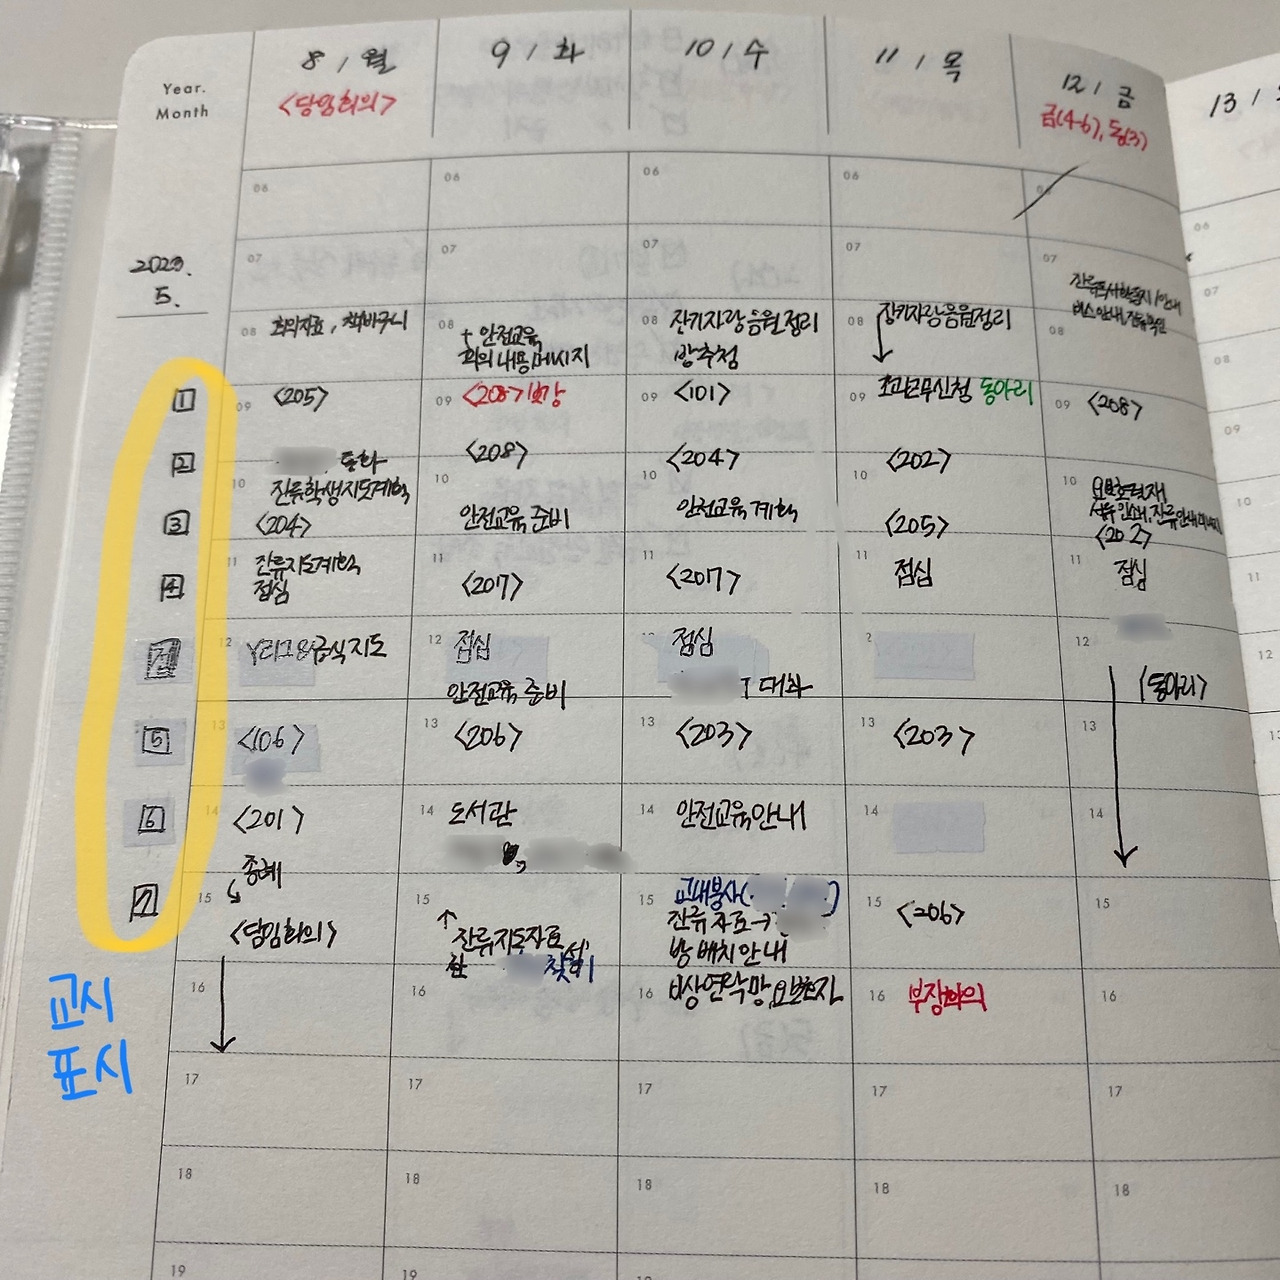 Year.
Month
2023.
5.
1
2
3
4
점
5
6
7
교시
표시
8 / 월
<담임회의>
06
07
08 회의자료, 책바구니
09 <205>
통화
10 잔류학생지도계획
<204>
11 잔류지도계획
점심
12 Y리그&급식지도
13 <106>
14 <201>
종례
15
<담임회의>
16
17
18
19
9 / 화
06
07
08 + 안전교육
회의내용메시지
09 <208> 보강
<208>
10
안전교육 준비
11 <207>
12 점심
안전교육 준비
13 <206>
14 도서관
15
잔류지도자료
찾기
16
17
18
19
10 / 수
06
07
08 장기자랑음원정리
방추첨
09 <101>
<204>
10
안전교육 계획
11 <207>
점심
대화
13 <203>
14 안전교육안내
15 교내봉사( )
잔류자료→
방 배치 안내
16 비상연락망,
17
18
11 / 목
06
07
08 장기자랑음원정리
09 초과근무신청 동아리
<202>
10
<205>
11 점심
13 <203>
14
15 <206>
16 부장회의
17
18
12 / 금
금(4-6), 동(3)
07
08
09 <208>
10
<202>
11 점심
12
(동아리)
13
14
15
16
17
18
13 /
06
07
08
09
10
11
12
13